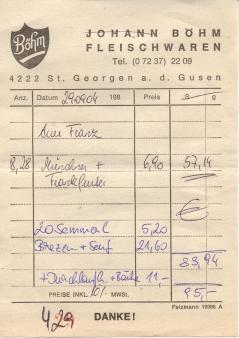 Böhm
JOHANN BÖHM
FLEISCHWAREN
Tel. (0 72 37) 22 09
4222 St. Georgen a. d. Gusen
Anz. Datum 290904 198 Preis S g
Franz
8,28 Münchner + 6,90 57,14
Frankfurter
€
20 Semmel 5,20
Brezen + Senf 21,60
83,94
+ 11,-
PREISE INKL. 10% MWSt. 95,-
Felzmann 19986 A
429 DANKE!